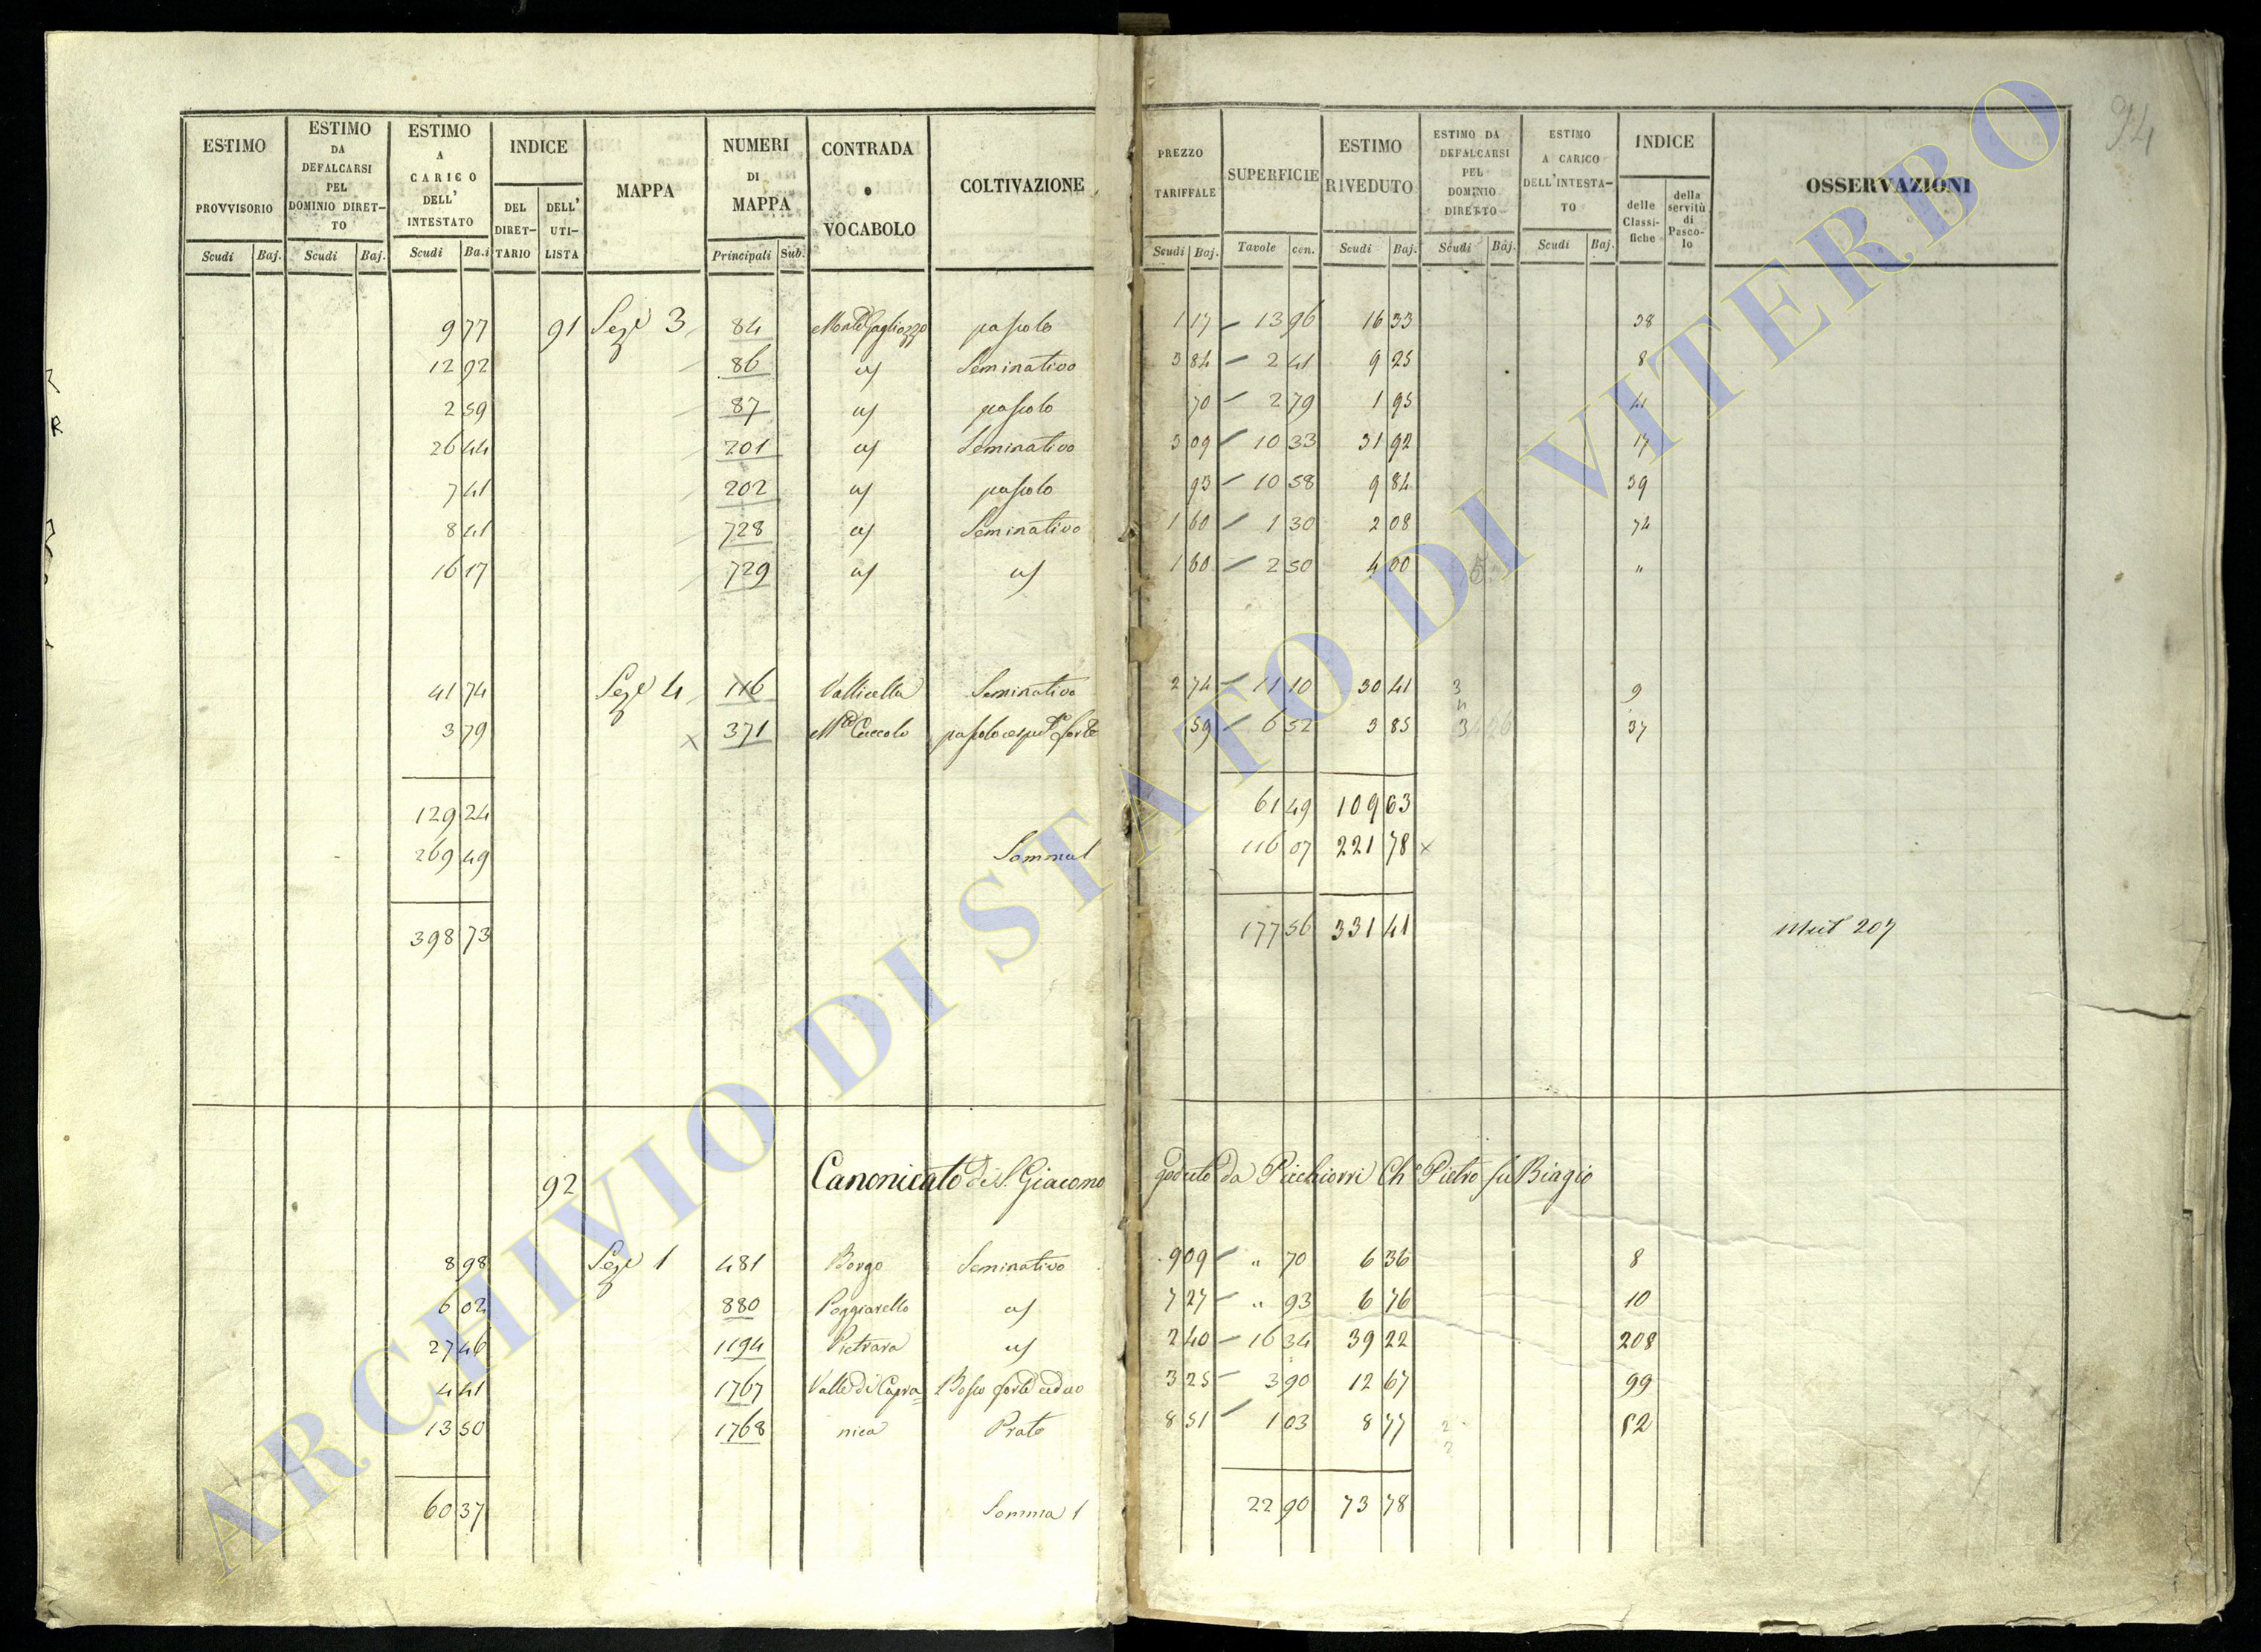 94
ESTIMO PROVVISORIO Scudi Baj.
ESTIMO DA DEFALCARSI PEL DOMINIO DIRET- TO Scudi Baj.
ESTIMO A CARICO DELL' INTESTATO Scudi Ba.i
INDICE DEL DIRET- TARIO DELL' UTI- LISTA
MAPPA
NUMERI DI MAPPA Principali Sub.
CONTRADA o VOCABOLO
COLTIVAZIONE
PREZZO TARIFFALE Scudi Baj.
SUPERFICIE Tavole cen.
ESTIMO RIVEDUTO Scudi Baj.
ESTIMO DA DEFALCARSI PEL DOMINIO DIRETTO Scudi Baj.
ESTIMO A CARICO DELL'INTESTA- TO Scudi Baj.
INDICE delle Classi- fiche della servitù di Pasco- lo
OSSERVAZIONI
9 77 91 Seze 3 84 pascolo 1 17 13 96 16 33 38
12 92 86 Seminativo 3 84 2 41 9 25 8
2 59 87 pascolo 70 2 79 1 95 41
26 44 201 Seminativo 3 09 10 33 31 92 17
7 41 202 pascolo 93 10 58 9 84 39
8 41 728 Seminativo 1 60 1 30 2 08 74
16 17 729 1 60 2 50 4 00 "
41 74 Seze 4 116 Vallicella Seminativo 2 74 11 10 30 41 9
3 79 x 371 Cuccolo pascolo forte 59 6 52 3 85 37
129 24 61 49 109 63
269 49 Somma 1 116 07 221 78 x
398 73 177 56 331 41 Mut 207
92 Canonicato di S. Giacomo goduto da Picchiorri Pietro fu Biagio
8 98 Seze 1 481 Borgo Seminativo 9 09 " 70 6 36 8
6 02 880 Poggiarello 7 27 " 93 6 76 10
27 46 1194 Pietrara 2 40 16 34 39 22 208
4 41 1767 Valle di Capra= Bosco forte ceduo 3 25 3 90 12 67 99
13 50 1768 nica Prato 8 51 1 03 8 77 52
60 37 Somma 1 22 90 73 78
ARCHIVIO DI STATO DI VITERBO